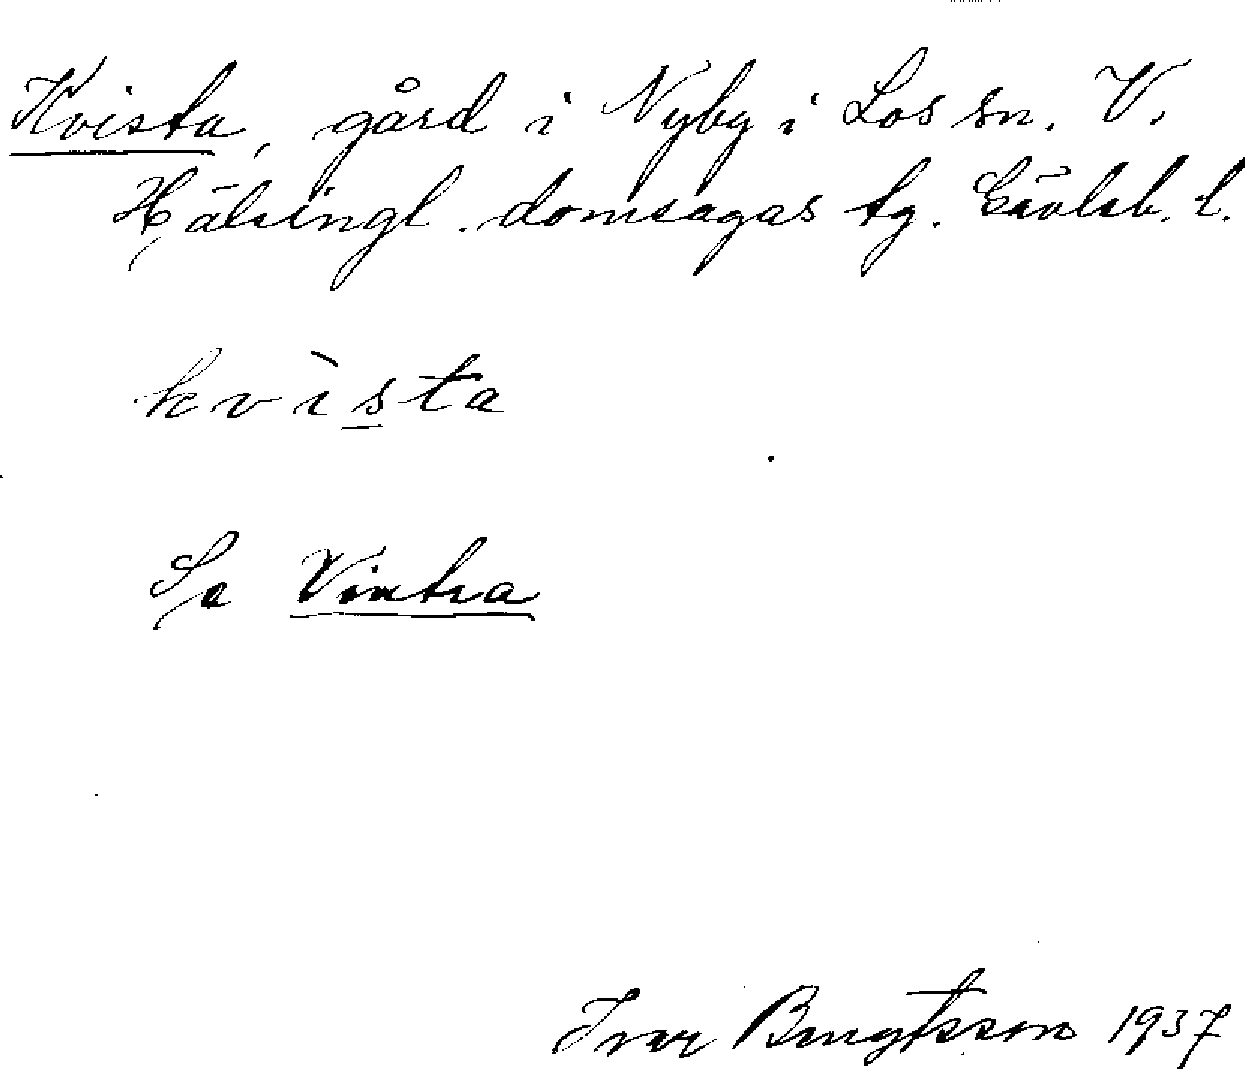 Kvista, gård i Nyby i Los sn. V.
Hälsingl. domsagas tg. Gävleb. l.
kvìsta
Se Vintra
Ivar Bengtsson 1937